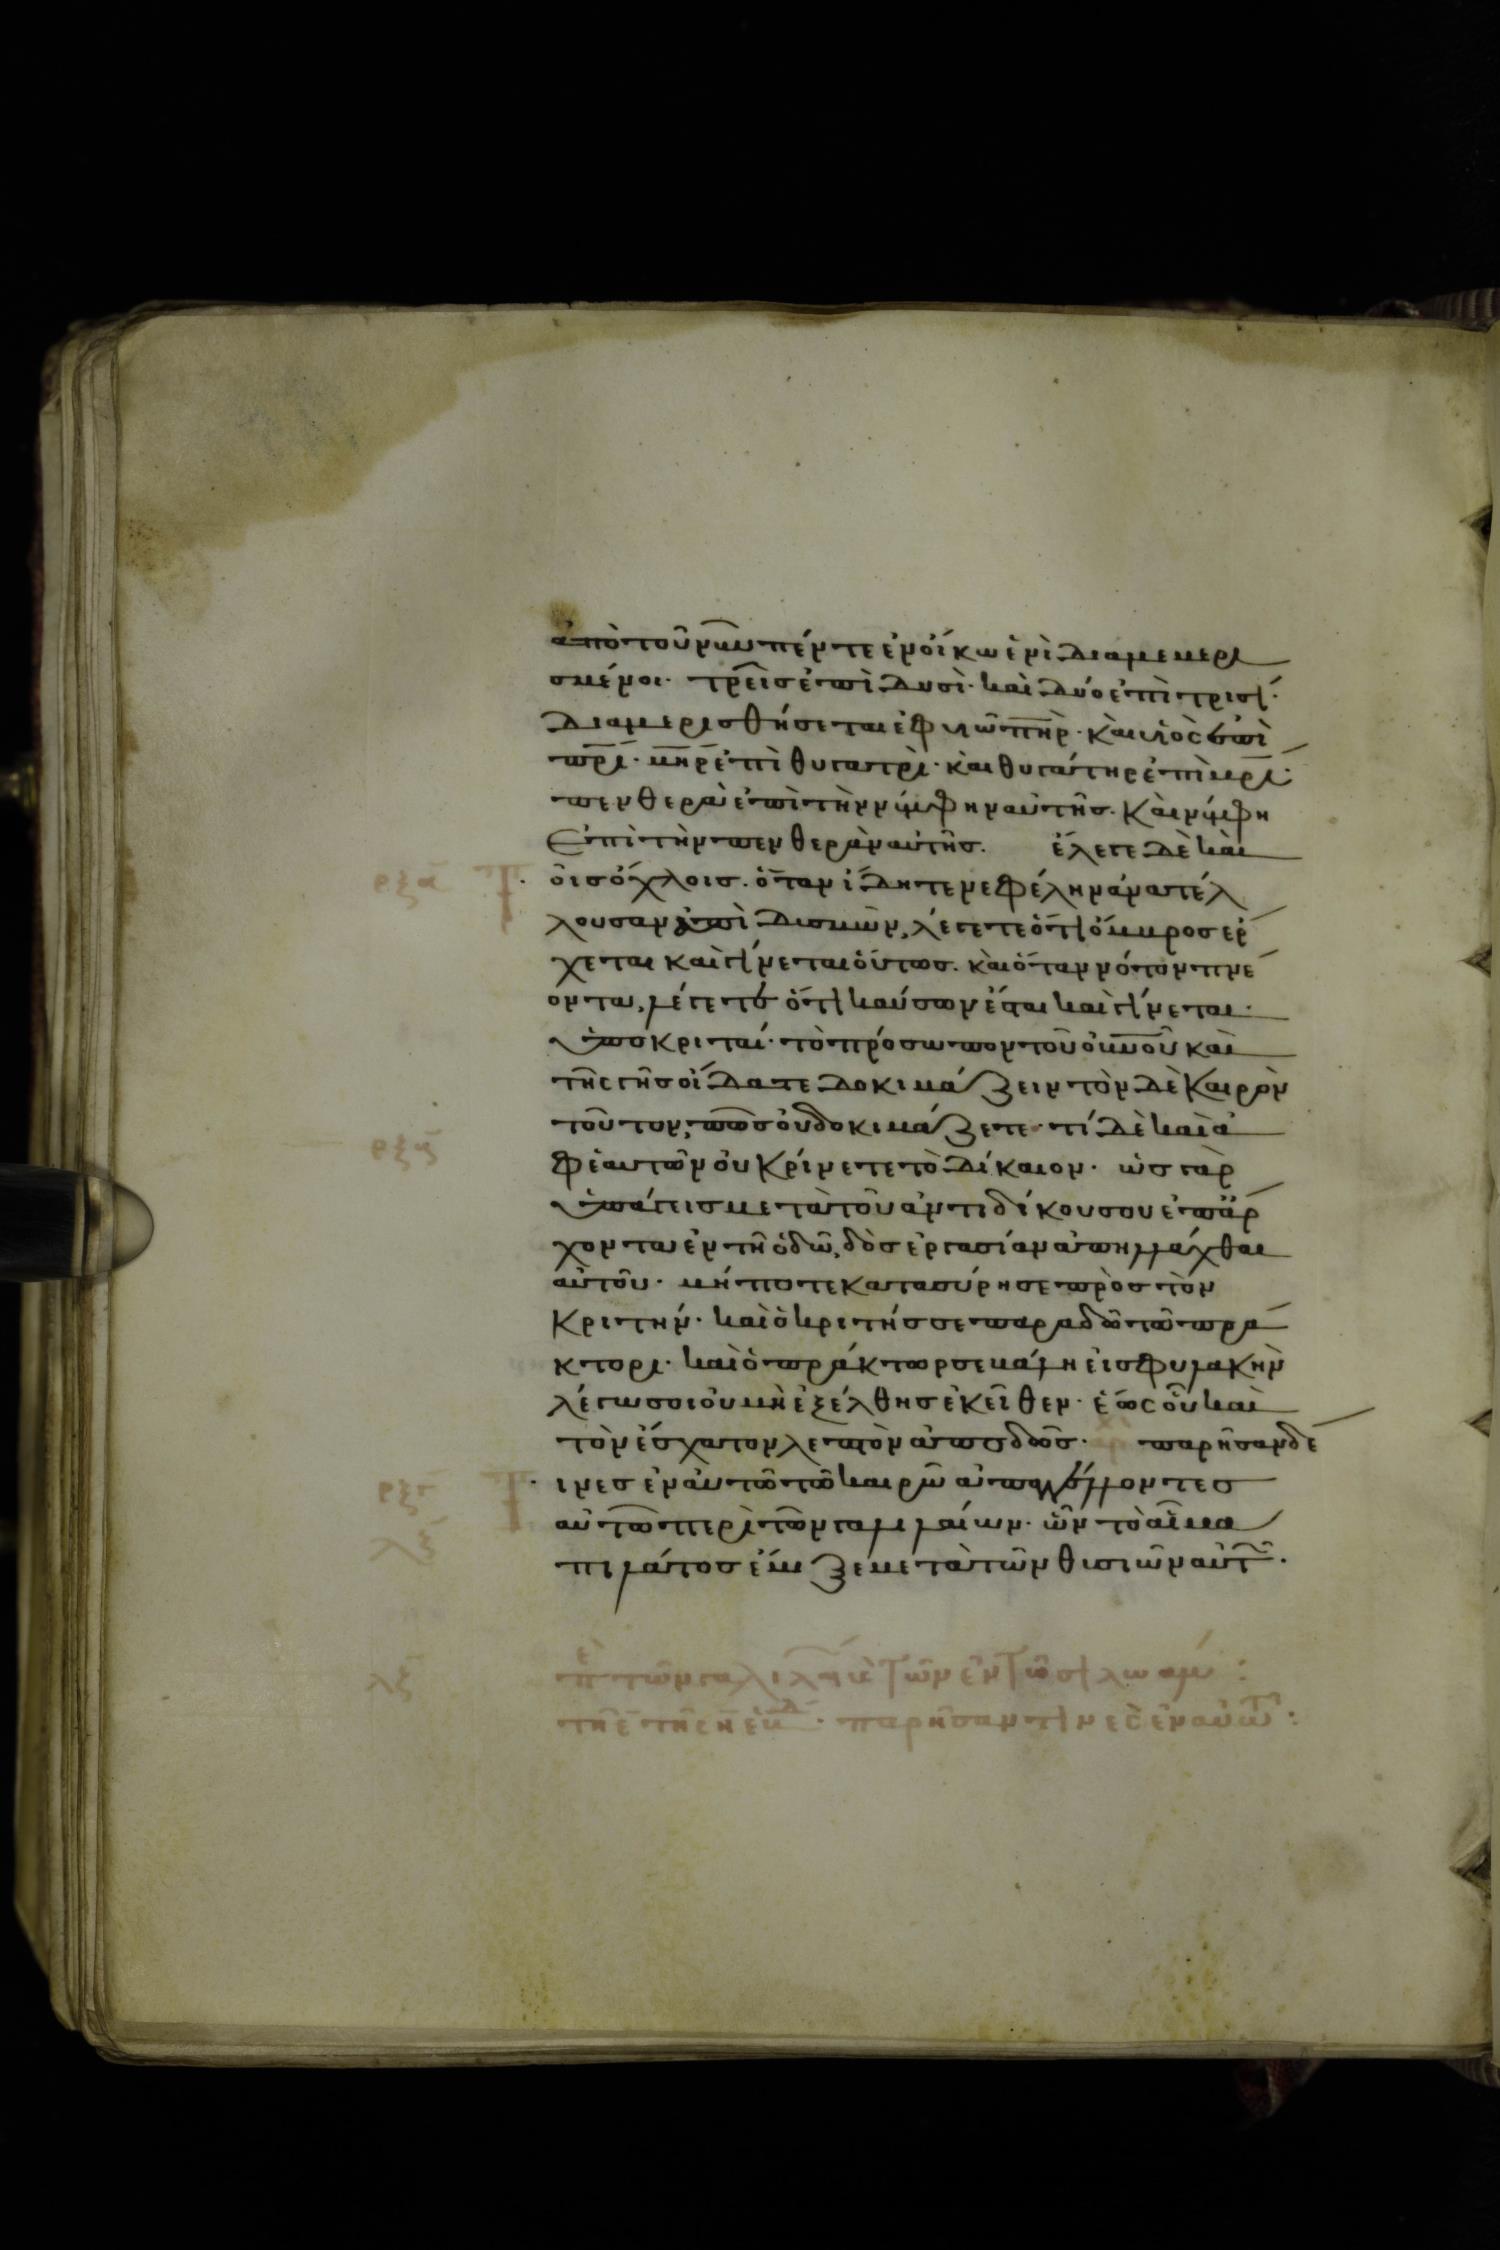 ἀπὸ τοῦ νῦν πέντε ἐν οἴκω ἑνὶ διαμεμερι
σμένοι· τρεῖς ἐπὶ δυσὶ· καὶ δύο ἐπὶ τρισί·
διαμερισθήσεται ἐφ υιῶ πηρ· καὶ υἱὸς ἐπὶ
πρι· μηρ ἐπὶ θυγατρὶ· καὶ θυγάτηρ ἐπὶ μρι·
πενθερὰ ἐπὶ τὴν νύμφην αὐτῆς. καὶ νύμφη
ἐπὶ τὴν πενθερὰν αὐτῆς. ἔλεγε δὲ καὶ
ρξα τοῖς ὄχλοις. ὅταν ἴδητε νεφέλην ἀνατέλ
λουσαν ἐπὶ δισμῶν, λέγετε ὅτι ὄμβρος ἔρ
χεται καὶ γίνεται οὕτως. καὶ ὅταν νότον πνέ
οντα, λέγετε ὅτι καύσων ἔσται καὶ γίνεται·
ὑποκριταί· τὸ πρόσωπον τοῦ οὐνοῦ καὶ
τῆς γῆς οἴδατε δοκιμάζειν τὸν δὲ καιρὸν
τοῦτον, πῶς οὐ δοκιμάζετε· τί δὲ καὶ ἀ
φ ἑαυτῶν οὐ κρίνετε τὸ δίκαιον· ὡς γὰρ
ὑπάγεις μετὰ τοῦ ἀντιδίκου σου ἐπ ἄρ
χοντα ἐν τῆ ὁδῶ, δὸς ἐργασίαν ἀπηλλάχθαι
αὐτοῦ· μήποτε κατασύρη σε πρὸς τὸν
κριτήν· καὶ ὁ κριτής σε παραδῶ τῶ πρά
κτορι· καὶ ὁ πράκτωρ σε βάλη εἰς φυλακὴν
λέγω σοι οὐ μὴ ἐξέλθης ἐκεῖθεν· ἕως οὗ καὶ
τὸν ἔσχατον λεπτὸν ἀποδῶς· παρῆσαν δέ
τινες ἐν αὐτῶ τῶ καιρῶ ἀπαγγέλλοντες
αὐτῶ περὶ τῶν γαλιλαίων· ὧν τὸ αἷμα
πιλάτος ἔμιξε μετὰ τῶν θισιῶν αὐτ·
τῶν ἐν τῶ σιλωάμ :
παρῆσαν τινὲς ἐν αὐτῶ :